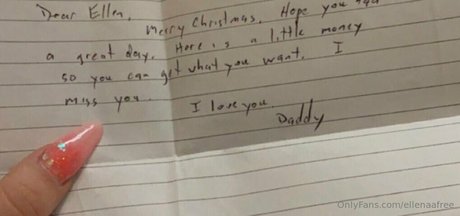 Dear Ellen,
Merry Christmas. Hope you had
a great day. Here is a little money
so you can get what you want. I
miss you. I love you.
Daddy
OnlyFans.com/ellenaafree